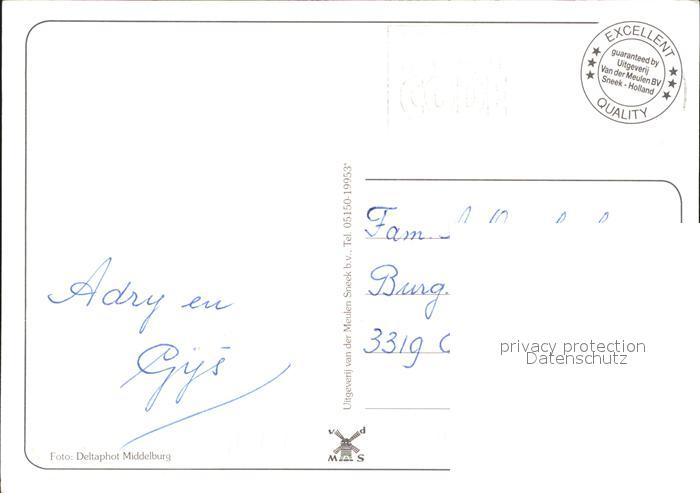 EXCELLENT
guaranteed by
Uitgeverij
Van der Meulen BV
Sneek - Holland
QUALITY
Uitgeverij van der Meulen Sneek b.v., Tel. 05150-19953*
Fam.
Burg.
3319
privacy protection
Datenschutz
Adry en
Gijs
Foto: Deltaphot Middelburg
v d
M S